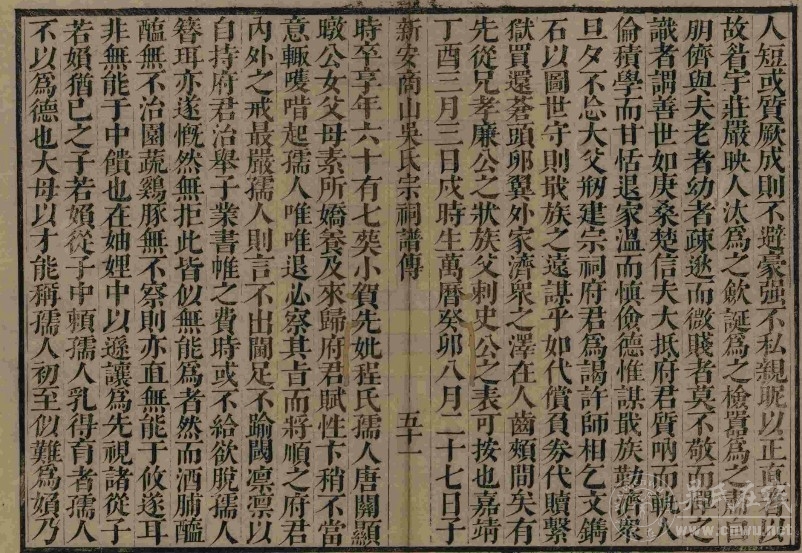 人短或質厥成則不避豪强不私親昵以正直著聞
故眷宇莊嚴映人汰爲之歛誕爲之檢嚚爲之肅
朋儕與夫老者幼者疎逖而微賤者莫不敬而憚焉
識者謂善世如庚桑楚信夫大抵府君質吶而軌人
倫積學而甘恬退家溫而慎儉德惟謀戢族勤濟衆
旦夕不忘大父剏建宗祠府君爲謁許師相乞文鐫
石以圖世守則戢族之遠謀乎如代償負劵代贖繫
獄買還蒼頭卵翼外家濟衆之澤在人齒頰間矣有
先從兄孝廉公之狀族父刺史公之表可按也嘉靖
丁酉三月三日戌時生萬曆癸卯八月二十七日子
新安商山吳氏宗祠譜傳 五十一
時卒享年六十有七葬小賀先妣程氏孺人唐闗顯
暾公女父母素所嬌養及來歸府君賦性卞稍不當
意輙嚄唶起孺人唯唯退必察其㫖而將順之府君
內外之戒最嚴孺人則言不出閫足不踰閾凛凛以
自持府君治舉子業書帷之費時或不給欲脫孺人
簪珥亦遂慨然無拒此皆似無能爲者然而酒脯醯
醢無不治園蔬鷄豚無不察則亦直無能于攸遂耳
非無能于中饋也在妯娌中以遜讓爲先視諸從子
若嬪猶已之子若媍從子中頼孺人乳得育者孺人
不以爲德也大母以才能稱孺人初至似難爲媍乃